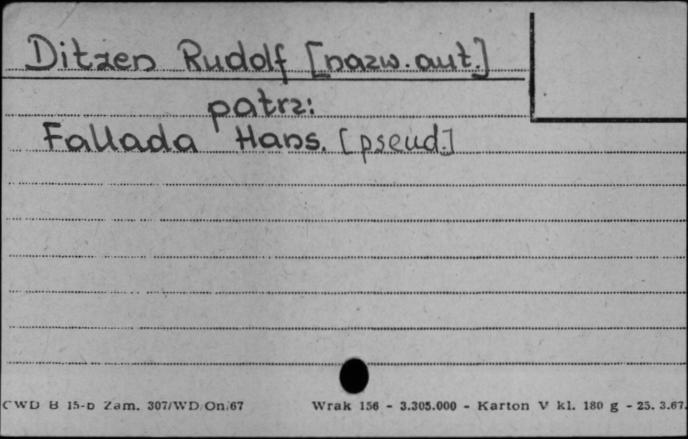 Ditzen Rudolf [nazw. aut.]
patrz:
Fallada Hans. [pseud.]
CWD B 15-b Zam. 307/WD/On/67 Wrak 156 - 3.305.000 - Karton V kl. 180 g - 25. 3.67.